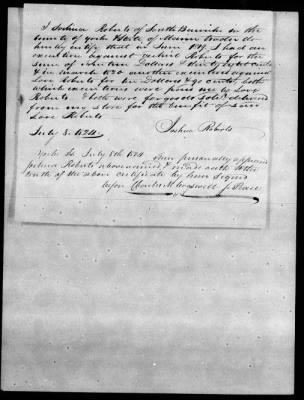 I Joshua Roberts of South Berwick in the
County of York State of Maine Trader do
hereby certify that in June 1819. I had an
execution against Jedh Roberts for the
sum of nineteen Dollars & thirty eight cents
& in March 1820 another execution against
Love Roberts for ten Dollars & 90 cents, both
which executions were paid me by Love
Roberts & both were for goods sold & delivered
from my store for the benefit of said
Love Roberts
July 8. 1824. Joshua Roberts
York Ss July 8th 1824 then personally appeared
Joshua Roberts above named & made oath to the
truth of the above certificate by him signed
before Charles N Cogswell J. Peace